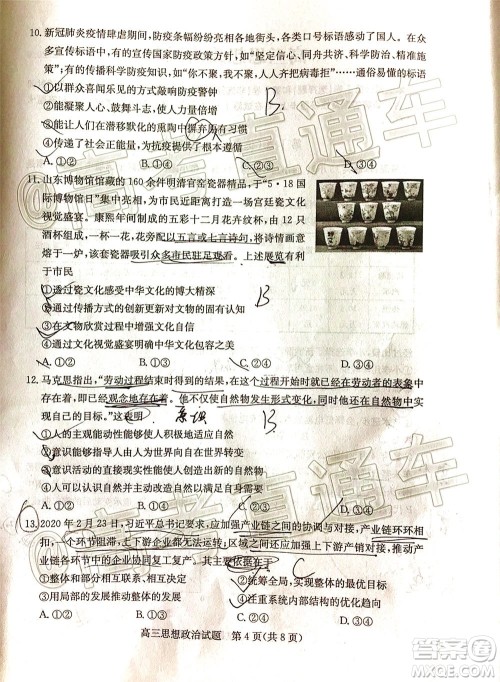 10. 新冠肺炎疫情肆虐期间，防疫条幅纷纷亮相各地街头，各类口号标语感动了国人。在众多标语
中，有的宣传国家防疫政策方针，如“坚定信心、同舟共济、科学防治、精准施
策”；有的传播科学防疫知识，如“你不聚，我不聚，
①以群众喜闻乐见的方式敲响防疫警钟
②能凝聚人心、鼓舞斗志，使人力量倍增
③能让人们在潜移默化的熏陶中摒弃陈旧习惯
④传递了社会正能量，为抗疫提供了根本遵循
A.①② B.①③ C.②④ D.③④
B.
11. 山东博物馆馆藏的 160 余件明清官窑瓷器精品，于“5·18 国
际博物馆日”集中亮相，为市民奉献了一场
视觉盛宴。康熙年间制成的五彩十二月花卉纹杯，由 12 只
酒杯组成，一杯一花，花旁配以五言或七言诗句，将诗情画意
熔于一炉，该套瓷器吸引众多市民驻足观看。上述展览有利
于市民
①透过瓷文化感受中华文化的博大精深
②通过传播方式的创新更新对文物的固有认知
③在文物欣赏过程中增强文化自信
④通过文化视觉盛宴明晰中华文化包容之美
B
A.①② B.①③ C.②④ D.③④
12. 马克思指出，“劳动过程结束时得到的结果，在这个过程开始时就已经在劳动者的表象中
存在着，即已经观念地存在着。他不仅使自然物发生形式变化，同时他还在自然物中实
现自己的目的。”这表明
B.
①人的主观能动性能够使人积极地适应自然
②意识能够使人类世界由自在世界走向自为世界
③意识活动的自觉选择性使人与世界的关系
④人可以认识自然规律并利用自然规律满足自己
A.①② B.①③ C.②④ D.③④
13. 2020 年 2 月 23 日，习近平总书记要求，应加强产业链之间的协调与对接，产业链环环相
扣，一个环节阻滞，上下游企业都无法运转，区域之间应加强上下游产销对接，推动产业
链各环节中的企业协同复工复产。其主要依据在于
C
①整体和部分相互区别 ②统筹全局，实现整体的最优目标
③用综合的思维方式认识事物 ④注重系统内部结构的优化趋向
A.①② B.①③ C.②④ D.③④
高三思想政治试题 第 4 页(共 8 页)
高考直通车